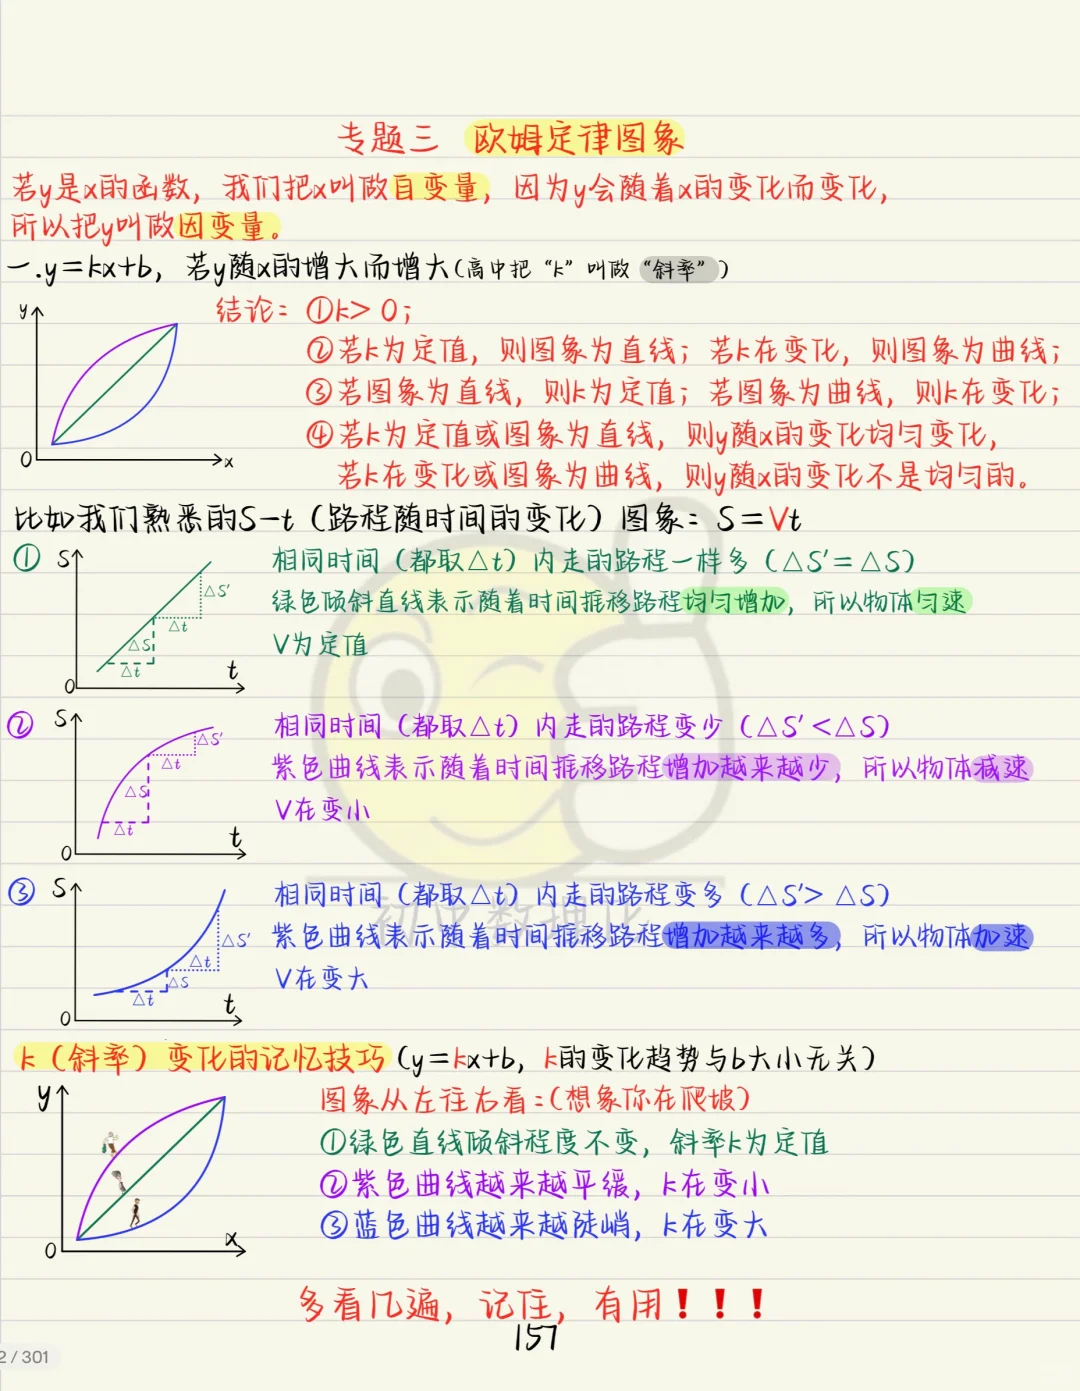 专题三 欧姆定律图象
若y是x的函数，我们把x叫做自变量，因为y会随着x的变化而变化，
所以把y叫做因变量。
一.y=kx+b，若y随x的增大而增大(高中把“k”叫做“斜率”)
y
结论：①k>0；
②若k为定值，则图象为直线；若k在变化，则图象为曲线；
③若图象为直线，则k为定值；若图象为曲线，则k在变化；
④若k为定值或图象为直线，则y随x的变化均匀变化，
0 x
若k在变化或图象为曲线，则y随x的变化不是均匀的。
比如我们熟悉的S-t（路程随时间的变化）图象：S=Vt
① S
相同时间（都取△t）内走的路程一样多（△S'=△S）
△S'
绿色倾斜直线表示随着时间推移路程均匀增加，所以物体匀速
△t
△S
V为定值
△t
t
0
② S
相同时间（都取△t）内走的路程变少（△S'<△S）
△S'
△t
紫色曲线表示随着时间推移路程增加越来越少，所以物体减速
△S
V在变小
△t
t
0
③ S
相同时间（都取△t）内走的路程变多（△S'>△S）
初中数理化
△S'
紫色曲线表示随着时间推移路程增加越来越多，所以物体加速
△t
△S
V在变大
△t
t
0
k（斜率）变化的记忆技巧(y=kx+b，k的变化趋势与b大小无关)
y
图象从左往右看：(想象你在爬坡)
①绿色直线倾斜程度不变，斜率k为定值
②紫色曲线越来越平缓，k在变小
③蓝色曲线越来越陡峭，k在变大
x
0
多看几遍，记住，有用！！！
157
2/301